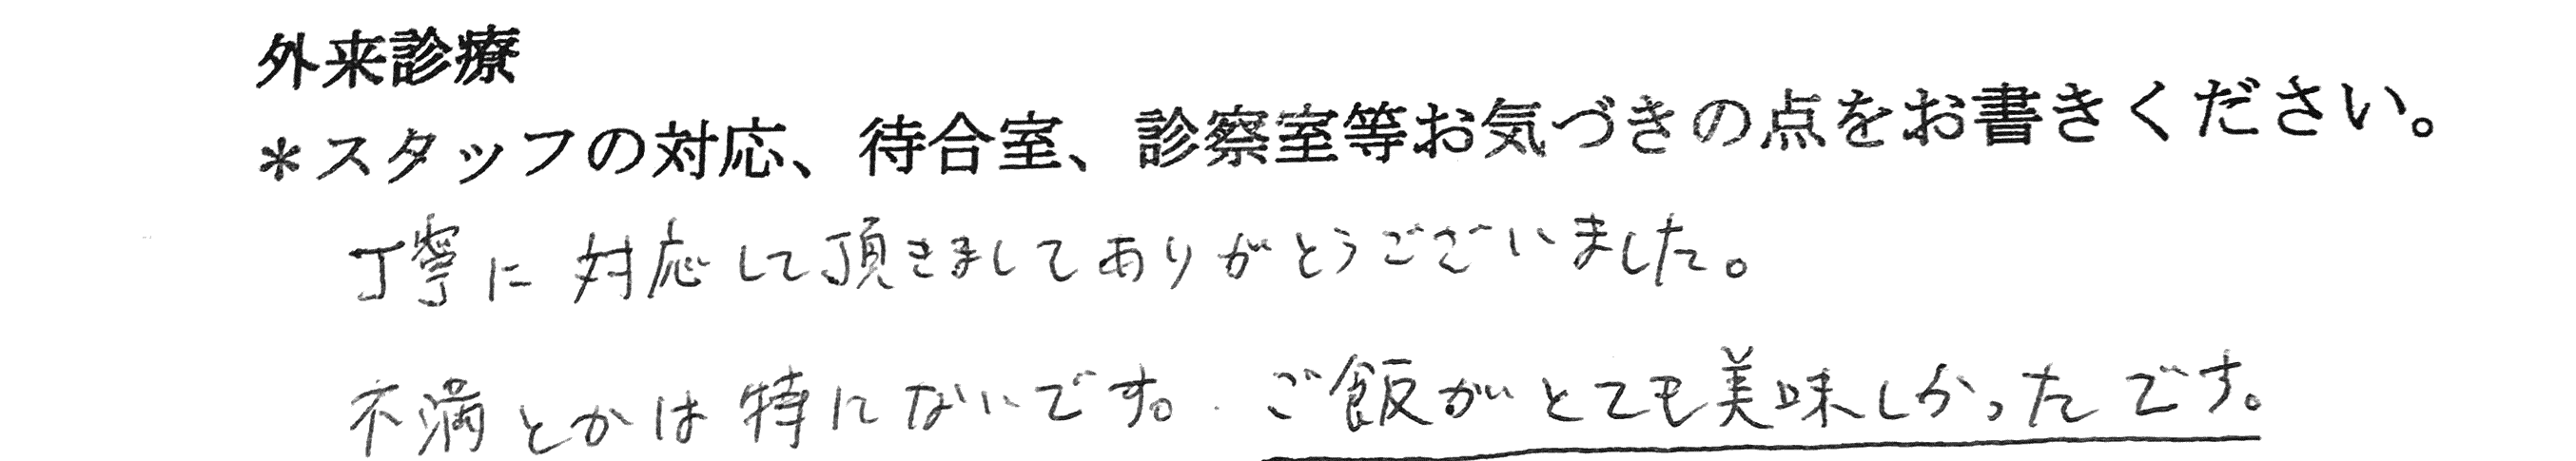 外来診療
＊スタッフの対応、待合室、診察室等お気づきの点をお書きください。
丁寧に対応して頂きましてありがとうございました。
不満とかは特にないです。ご飯がとても美味しかったです。